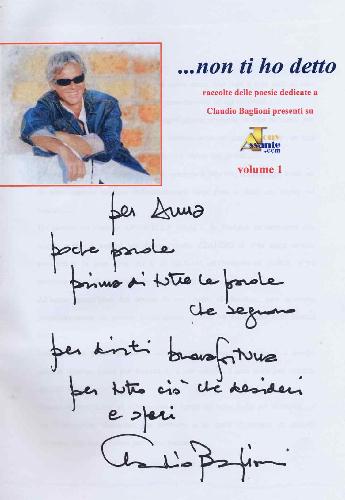 ...non ti ho detto
raccolte delle poesie dedicate a
Claudio Baglioni presenti su
Tony
Assante
.com
volume 1
per Anna
poche parole
prima di tutte le parole
che seguono
per dirti buonafortuna
per tutto ciò che desideri
e speri
Claudio Baglioni